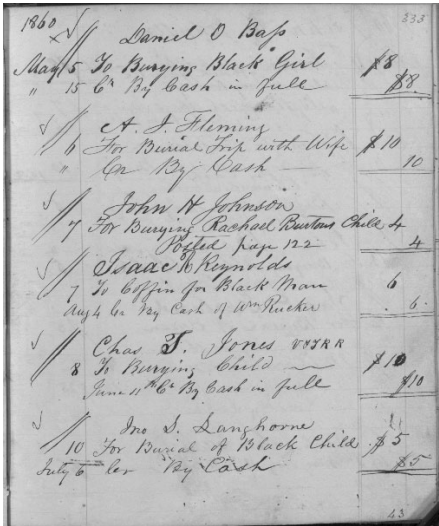 1860
333
Daniel O Bass
May 5 To Burying Black Girl $8
" 15 Cr By Cash in full $8
A. J. Fleming
6 For Burial Trip with Wife $10
" Cr By Cash 10
John H Johnson
7 For Burying Rachael Burtons Child 4
Posted page 122 4
Isaac R Reynolds
7 To Coffin for Black Man 6
Aug 4 Cr By Cash of Wm Rucker 6
Chas T. Jones V&TRR
8 To Burying Child $10
June 11th Cr By Cash in full $10
Jno S. Langhorne
10 For Burial of Black Child $5
July 6 Cr By Cash $5
43